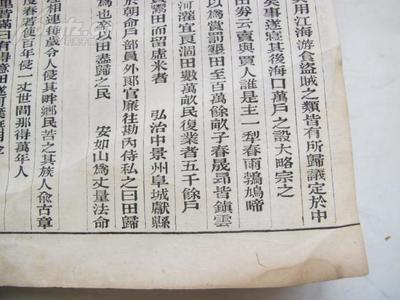 江海游食盜賊之類皆有所歸議定於中
吳事遂寢其後海口萬戶之設大略宗之
田券云賣與買人誰是主一犁春雨鵓鳩啼
以為賞罰墾田至百萬餘畝子春晟昂皆鎮雲
河瀧宜良涸田數萬畝民復業者五千餘戶
墾田而留虛米者 弘治中景州阜城獻縣
於朝命戶部員外郎官廉往勘內侍私之曰田歸
為也卒以田盡歸之民 安如山為丈量法命
相連每歲令人侵其畔鄉民苦之其族人兪古章
春若使百年侵一丈世間那得萬年人